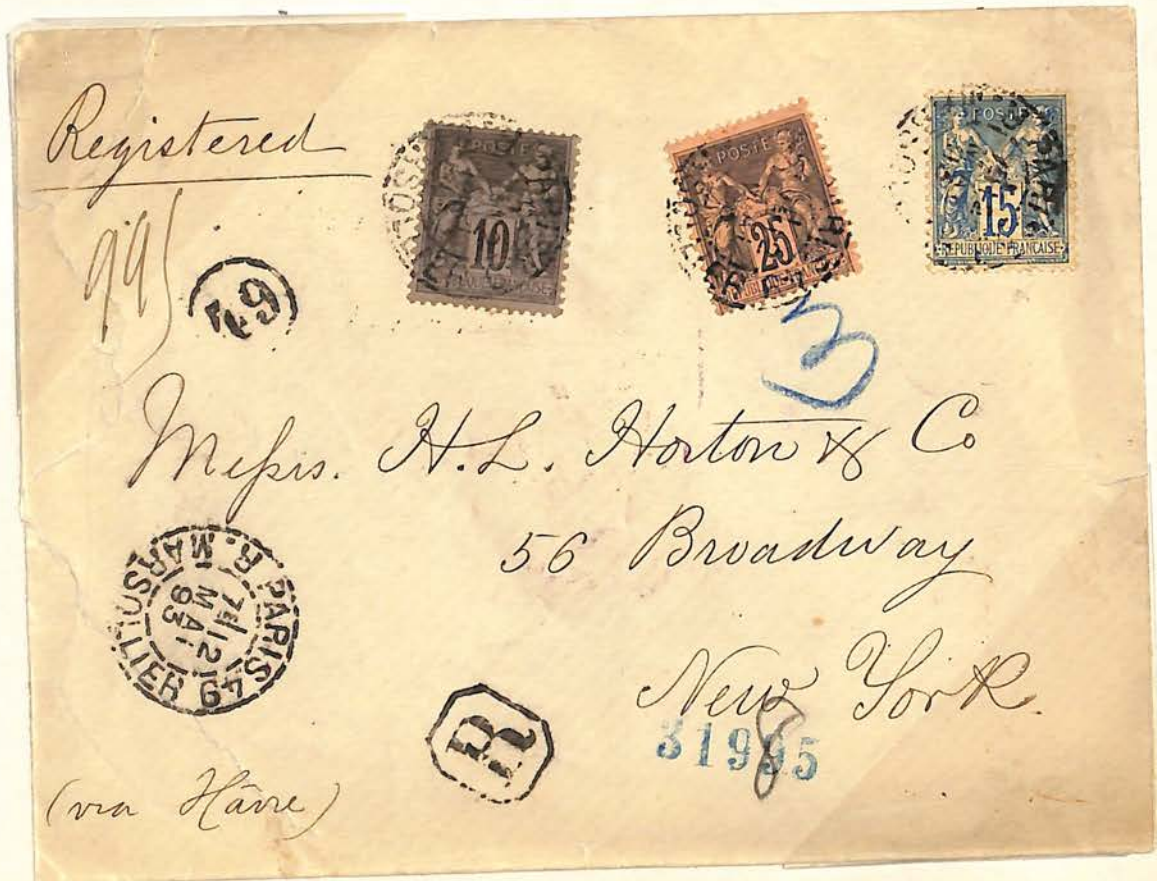 Registered
995
POSTE
10
POSTE
25
POSTE
15
REPUBLIQUE FRANCAISE
49
3
Messrs. H. L. Horton & Co
56 Broadway
New York.
31985
PARIS 49
R. MARSOLLIER
7E 12
MAI
93
R
(via Hâvre)